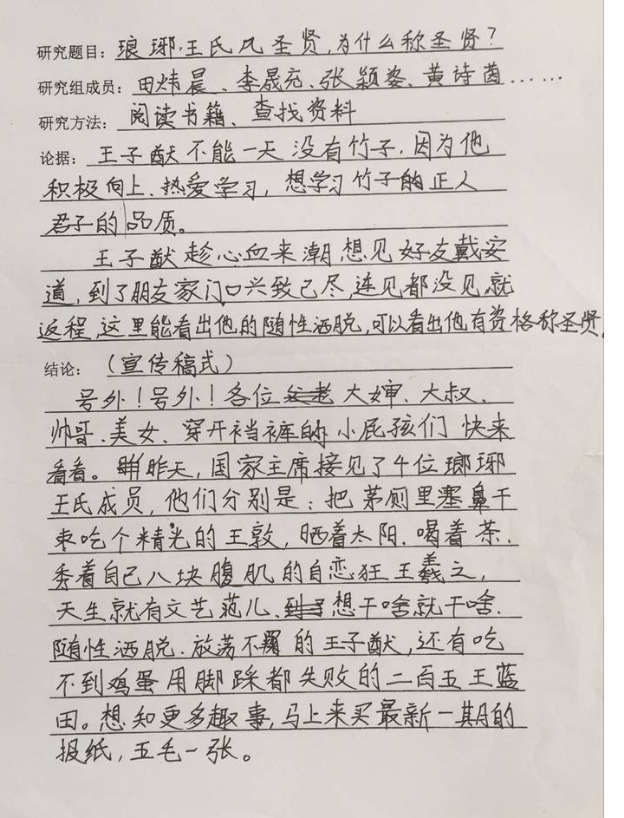 研究题目：琅琊王氏凡圣贤，为什么称圣贤？
研究组成员：田炜晨、李晟充、张颖姿、黄诗茵……
研究方法：阅读书籍、查找资料
论据：王子猷不能一天没有竹子，因为他
积极向上、热爱学习，想学习竹子的正人
君子的品质。
王子猷趁心血来潮想见好友戴安
道，到了朋友家门口兴致已尽，连见都没见就
返程，这里能看出他的随性洒脱，可以看出他有资格称圣贤。
结论：（宣传稿式）
号外！号外！各位大婶、大叔、
帅哥、美女、穿开裆裤的小屁孩们快来
看看。昨天，国家主席接见了4位瑯琊
王氏成员，他们分别是：把茅厕里塞鼻干
枣吃个精光的王敦，晒着太阳、喝着茶、
秀着自己八块腹肌的自恋狂王羲之，
天生就有文艺范儿、想干啥就干啥、
随性洒脱、放荡不羁的王子猷，还有吃
不到鸡蛋用脚踩都失败的二百五王蓝
田。想知更多趣事，马上来买最新一期的
报纸，五毛一张。